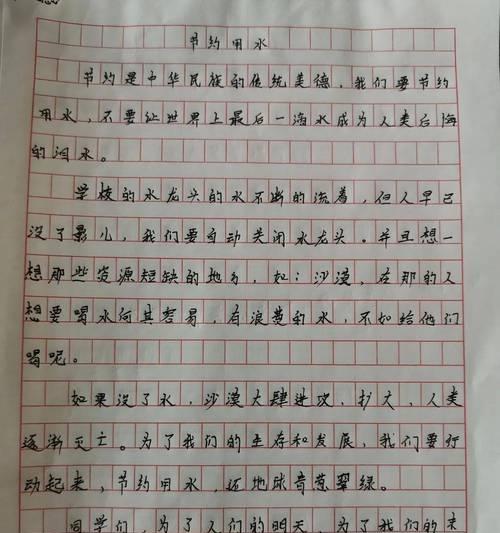 节约用水
节约是中华民族的传统美德，我们要节约
用水，不要让世界上最后一滴水成为人类后悔
的泪水。
学校的水龙头的水不断的流着，但人早已
没了影儿，我们要自动关闭水龙头。并且想一
想那些资源短缺的地方，如：沙漠，在那的人
想要喝水何其容易，有浪费的水，不如给他们
喝呢。
如果没了水，沙漠大肆进攻，扩大，人类
逐渐灭亡。为了我们的生存和发展，我们要行
动起来，节约用水，还地球音葱翠绿。
同学们，为了人们的明天，为了我们的未